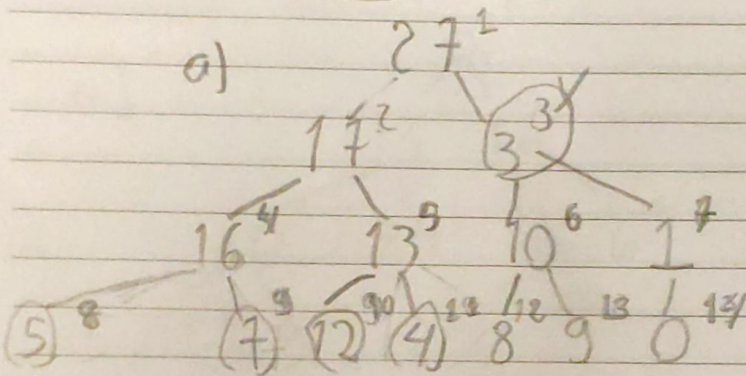 27 1
a)
17 2 3 3
16 4 13 5 10 6 1 7
5 8 7 9 12 10 4 11 8 12 9 13 0 14